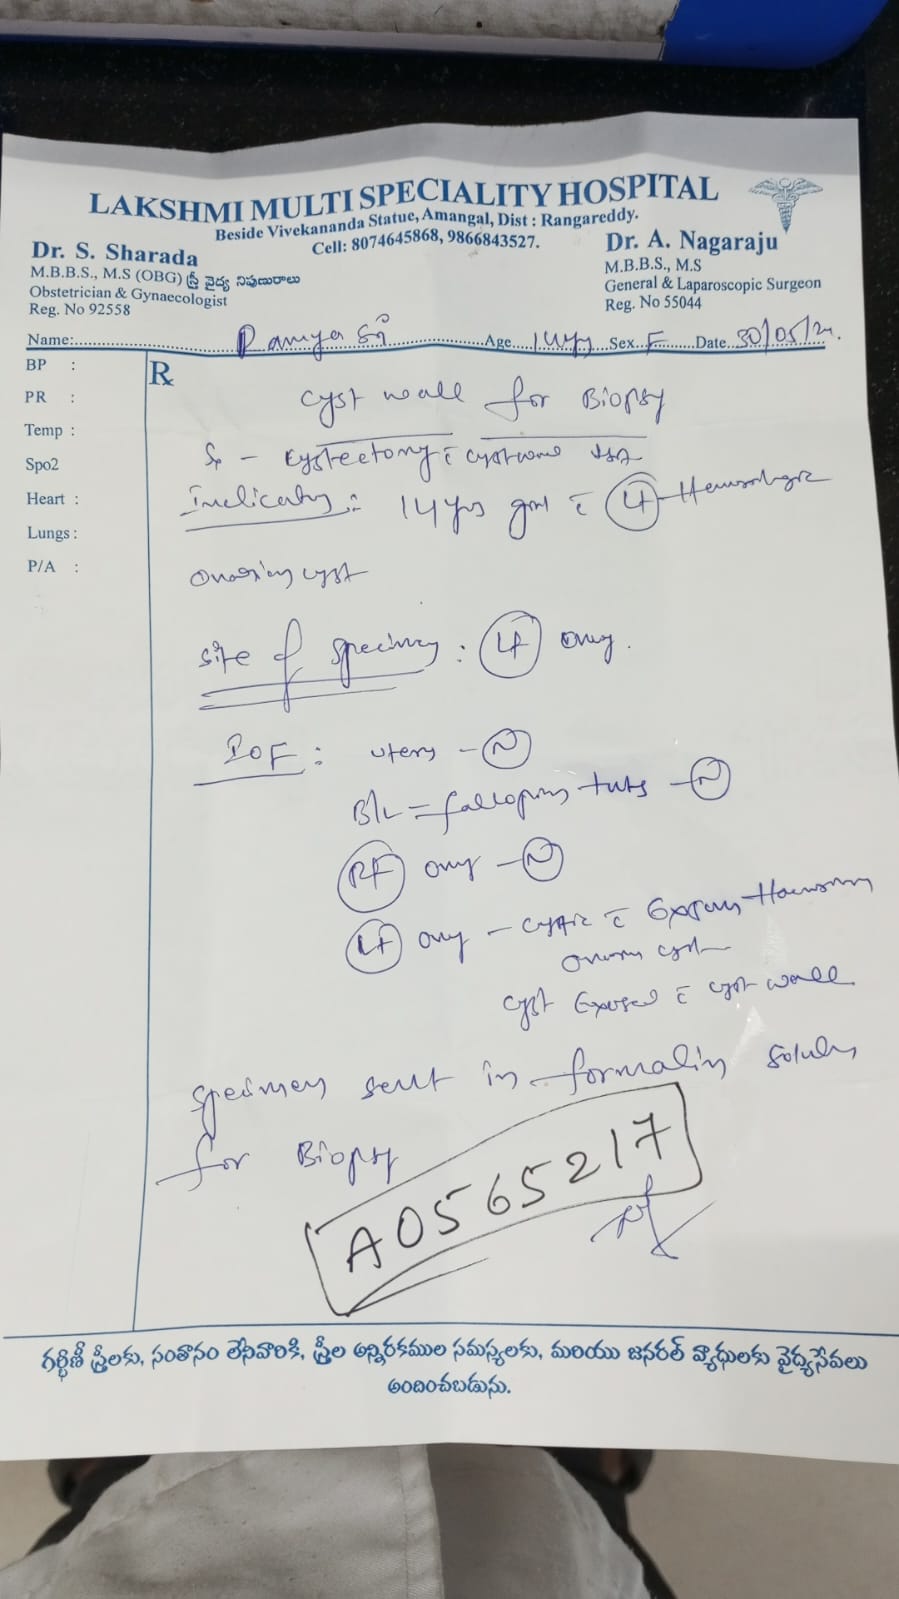 LAKSHMI MULTI SPECIALITY HOSPITAL
Beside Vivekananda Statue, Amangal, Dist : Rangareddy.
Cell: 8074645868, 9866843527.
Dr. S. Sharada
M.B.B.S., M.S (OBG) స్త్రీ వైద్య నిపుణురాలు
Obstetrician & Gynaecologist
Reg. No 92558
Dr. A. Nagaraju
M.B.B.S., M.S
General & Laparoscopic Surgeon
Reg. No 55044
Name: Ramya Sri Age 14yrs Sex F Date 30/05/
BP :
PR :
Temp :
Spo2
Heart :
Lungs :
P/A :
R
Cyst wall for Biopsy
- Cystectomy c̄
: 14 yrs c̄ Lt Hemorrhagic
Ovarian cyst
Site of specimen : Lt ovary.
IOF : uterus - N
B/L = fallopian tubes - N
Rt ovary - N
Lt ovary - cystic c̄
ovarian cyst
cyst c̄ cyst wall
Specimen sent in formalin solution
for Biopsy
A0565217
గర్భిణీ స్త్రీలకు, సంతానం లేనివారికి, స్త్రీల అన్నిరకముల సమస్యలకు, మరియు జనరల్ వ్యాధులకు వైద్యసేవలు
అందించబడును.